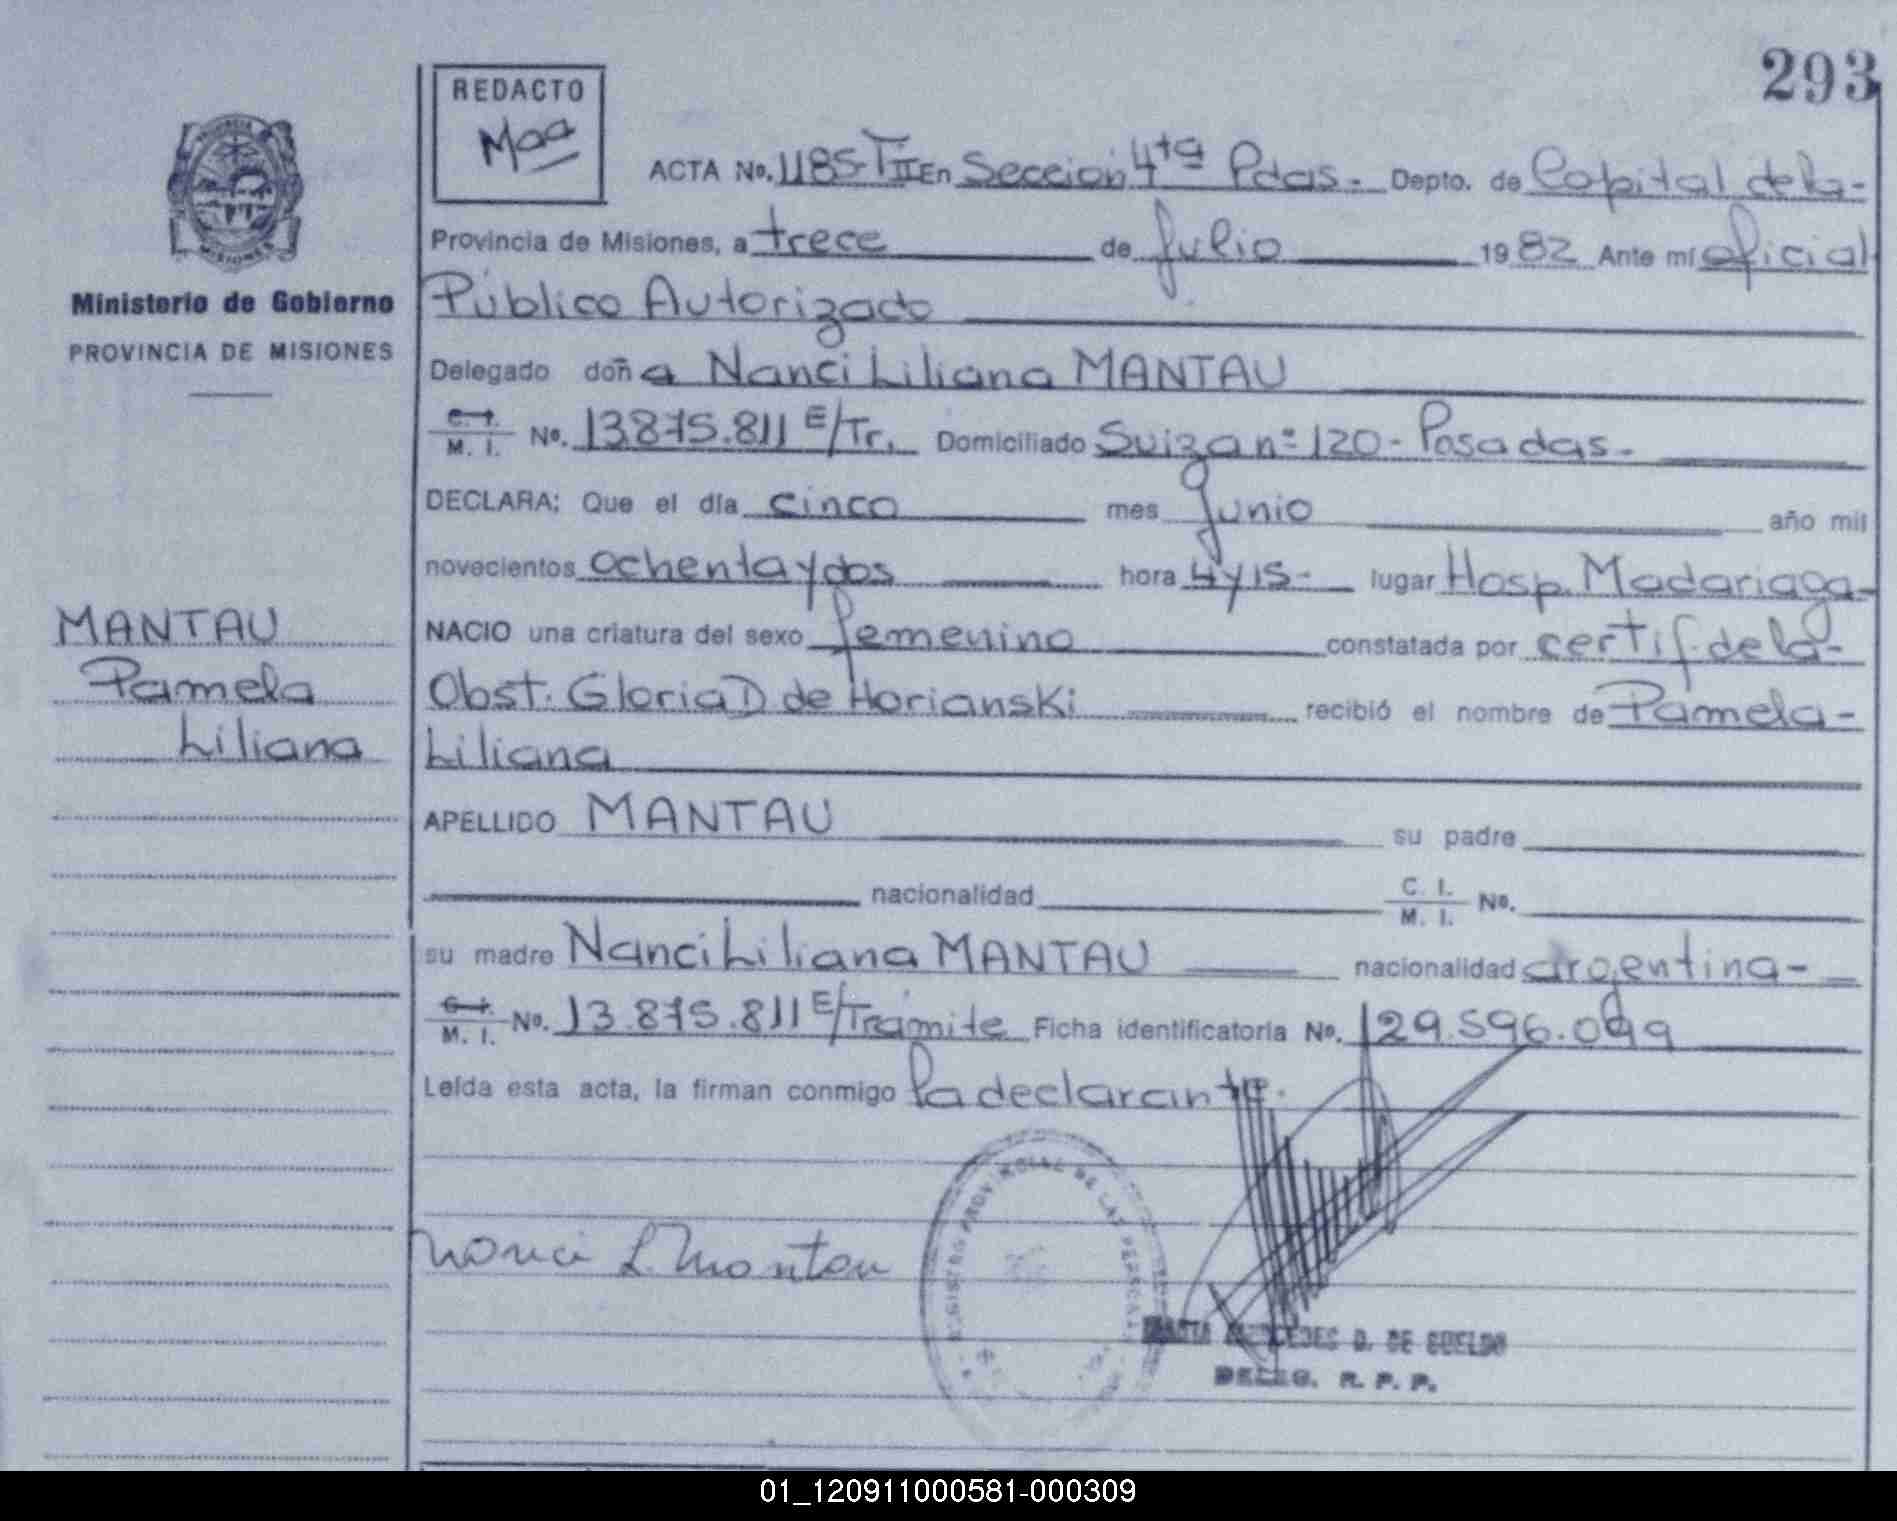 293
REDACTO
Maa
ACTA No. 1185 T II En Sección 4ta Pdas. Depto. de Capital de la-
Provincia de Misiones, a trece de Julio 1982 Ante mí oficial
Público Autorizado
Delegado doña Nanci Liliana MANTAU
C. I. / M. I. No. 13.875.811 E/Tr. Domiciliado Suiza nº 120 - Posadas.
DECLARA; Que el día cinco mes Junio año mil
novecientos ochenta y dos hora 4 y 15- lugar Hosp. Madariaga-
NACIO una criatura del sexo femenino constatada por certif. de la-
Obst. Gloria D de Horianski recibió el nombre de Pamela-
Liliana
APELLIDO MANTAU su padre
nacionalidad C. I. / M. I. No.
su madre Nanci Liliana MANTAU nacionalidad argentina-
C. I. / M. I. No. 13.875.811 E/Tramite Ficha identificatoria No. 129.596.099
Leída esta acta, la firman conmigo la declarante.
Nanci L. Mantau
REGISTRO PROVINCIAL DE LAS PERSONAS
MERCEDES D. DE
DELEG. R. P. P.
PROVINCIA
MISIONES
Ministerio de Gobierno
PROVINCIA DE MISIONES
MANTAU
Pamela
Liliana
01_120911000581-000309